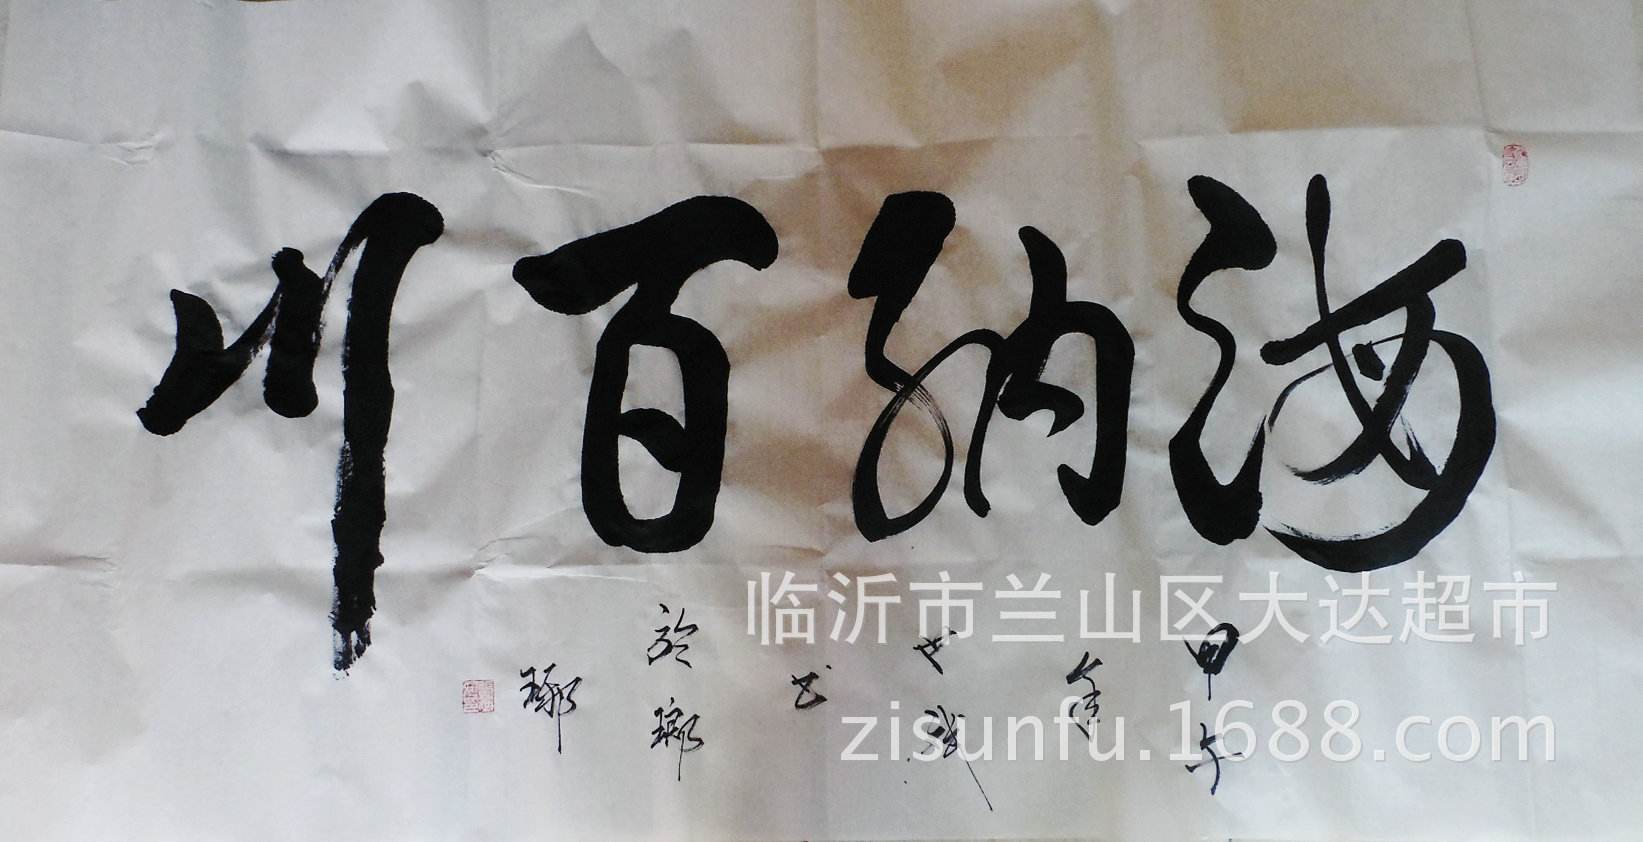 海纳百川
甲午
年
世
书
於瑯
琊
临沂市兰山区大达超市
zisunfu.1688.com